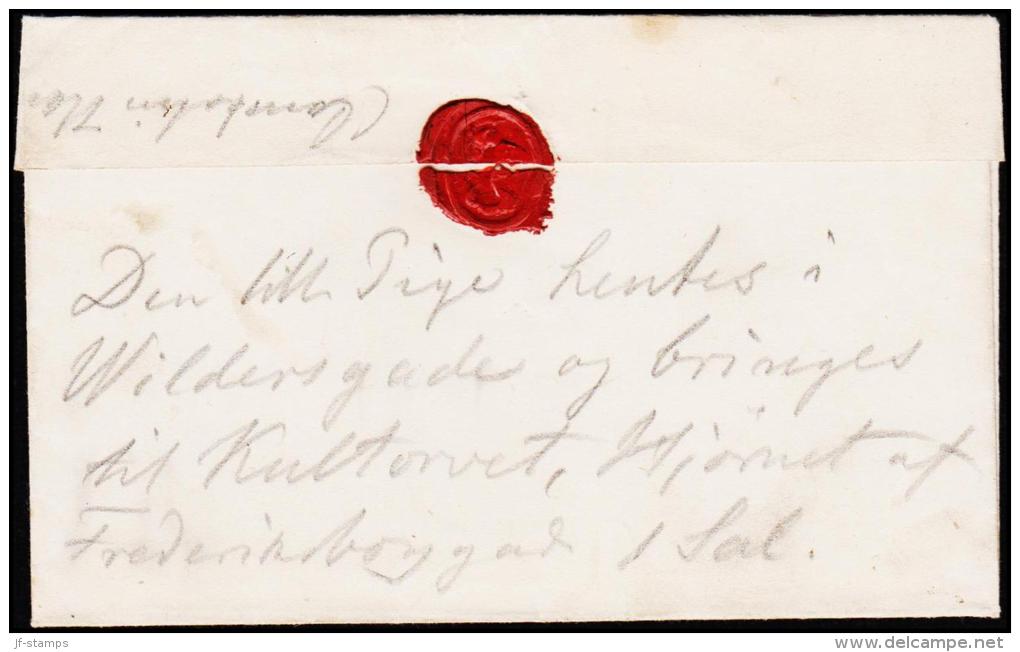 Den lille Pige hentes i
Wildersgade og bringes
til Kultorvet, Hjørnet af
Frederiksborggade 1 Sal.
jf-stamps
www.delcampe.net